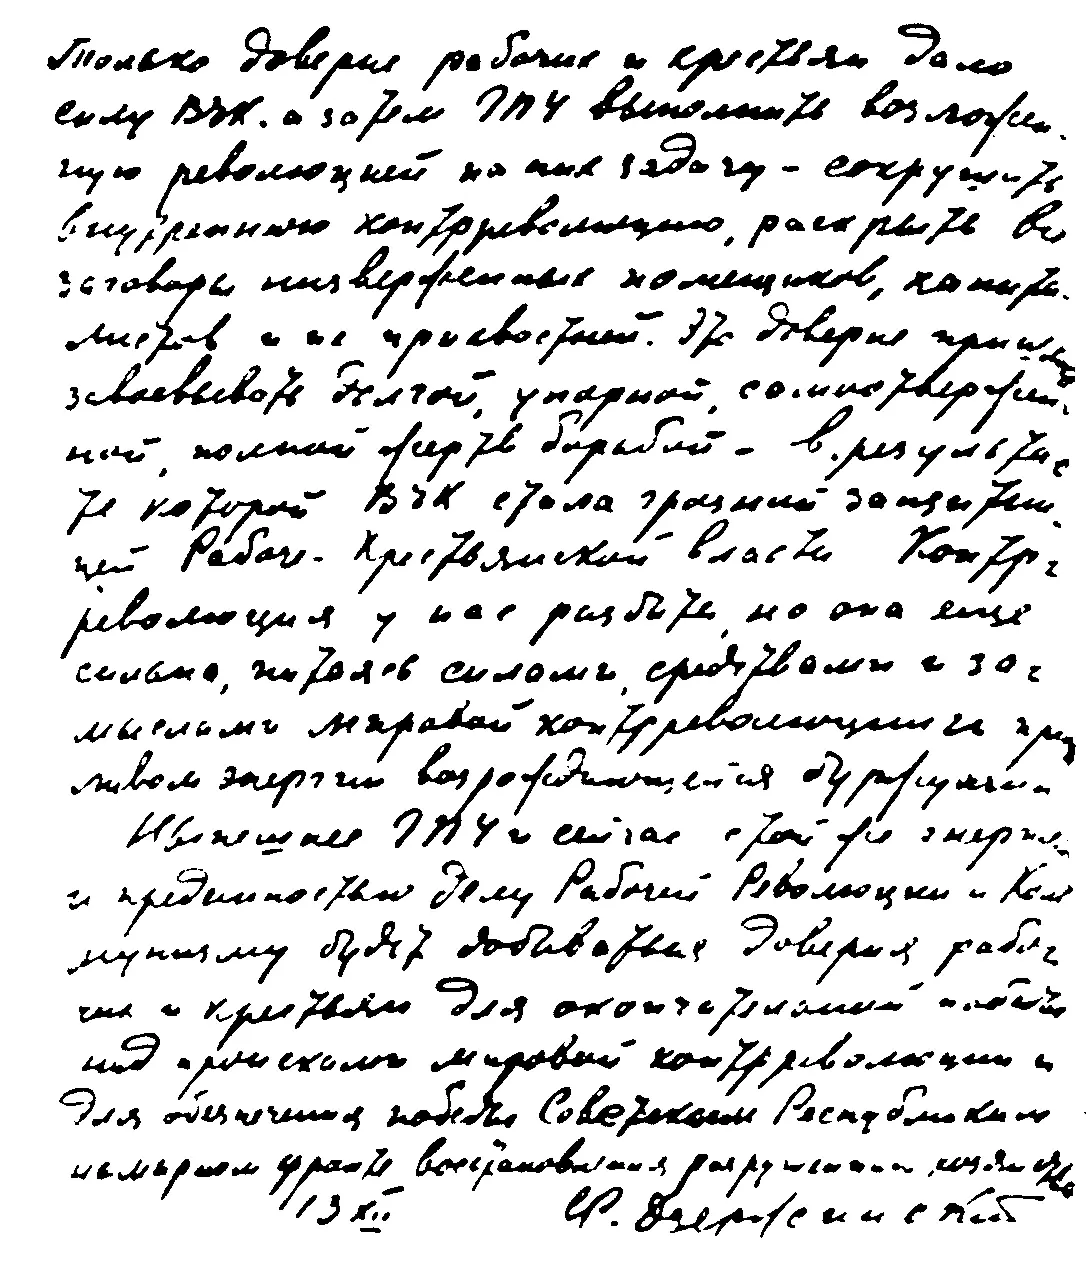 Только доверие рабочих и крестьян дало
силу ВЧК. а затем ГПУ выполнить возложен-
ную революцией на них задачу – сокрушить
внутреннюю контрреволюцию, раскрыть все
заговоры низверженных помещиков, капита-
листов и их прихвостней. Это доверие пришлось
завоевывать долгой, упорной, самоотвержен-
ной, полной жертв борьбой – в результа-
те которой ВЧК стала грозным защитни-
цей Рабоче-Крестьянской власти Контр-
революция у нас разбита, но она еще
сильна, питаясь силами, средствами и за-
мыслами мировой контрреволюции и при
ливом энергии возрождающейся буржуазии
Нынешнее ГПУ и сейчас с той же энергие-
и преданностью делу Рабочей Революции и Ком
мунизму будет добиваться доверия рабо-
чих и крестьян для окончательной победы
над происками мировой контрреволюции и
для обеспечения победы Советским Республикам
на мирном фронте восстановления разрушенного хозяйства
13 XII Ф. Дзержинский